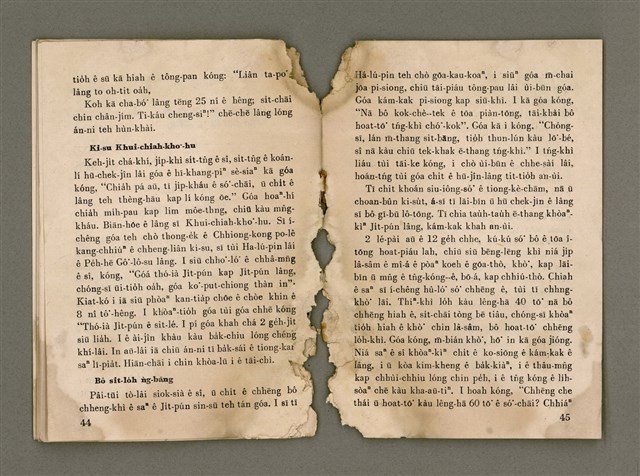 tio̍h ê sū kā hiah ê tông-pan kóng: “Liân ta-po͘
lâng to oh-tit oa̍h,
Koh kā cha-bó͘ lâng tēng 25 nî ê hêng; si̍t-chāi
chin chân-jím. Ti-káu cheng-siⁿ!” chē-chē lâng lóng
án-ni teh hùn-khài.
Ki-su Khui-chiah-kho͘-hu
Keh-ji̍t chá-khí, ji̍p-khì si̍t-tn̂g ê sî, si̍t-tn̂g ê koán-
lí hū-chek-jîn lâi góa ê hi-khang-piⁿ sè-siaⁿ kā góa
kóng, “Chiah pá aū, tī ji̍p-kháu ê só͘-chāi, ū chi̍t ê
lâng teh thèng-hāu kap lí kóng ōe.” Góa hoaⁿ-hí
chia̍h mi̍h-pau kap lim môe-thng, chiū kàu mn̂g-
kháu. Biān-hōe ê lâng sī Khui-chiah-kho͘-hu. Sī í-
chêng góa teh chò thong-e̍k ê Chhiong-kong po-lê
kang-chhiúⁿ ê chheng-liân ki-su, sī tùi Ha-lú-pin lâi
ê Pe̍h-hē Gô͘-lô-su lâng. I siū chho͘-ló͘ ê chhâ-mn̂g
ê sî, kóng, “Góa thò-ià Ji̍t-pún kap Ji̍t-pún lâng,
chóng-sī ūi-tio̍h oa̍h, góa ko͘-put-chiong thàn in”.
Kiat-kó i iā siū phòaⁿ kan-tia̍p chōe ê chòe khin ê
8 nî tô͘-hêng. I khòaⁿ-tio̍h góa tùi góa chhē kóng
“Thó-ià Ji̍t-pún ê sit-lé. I pí góa khah chá 2 ge̍h-ji̍t
siū lia̍h. I ê ài-jîn khàu kàu ba̍k-chiu lóng chéng
khí-lâi. In aū-lâi iā chiū án-ni tī ba̍k-sái ê tiong-kaⁿ
saⁿ lī-pia̍t. Hiān-chāi i chin khòa-lū i ê tāi-chì.
Bô sit-lo̍h n̂g-bāng
Pâi-tūi tò-lâi siok-sià ê sî, ū chi̍t ê chhēng bô
chheng-khì ê saⁿ ê Ji̍t-pún sin-sū teh tán góa. I sī tī
44
Há-lú-pin teh chò gōa-kau-koaⁿ, i siūⁿ góa m̄-chai
jōa pi-siong, chiū tāi-piáu tông-pau lâi úi-būn góa.
Góa kám-kak pi-siong kap siū-khì. I kā góa kóng,
“Nā bô kok-chè-tek ê tōa piàn-tōng, tāi-khài bô
hoat-tō͘ tńg-khì chó͘-kok”. Góa kā i kóng, “Chóng-
sī, lán m̄-thang sit-bāng, tio̍h thun-lún kàu lō͘-bé,
sī nā kàu chiū tek-khak ē-thang tńg-khì.” I tńg-khì
liáu tùi tāi-ke kóng, i chò úi-būn ê chhe-sài lâi,
hoàn-tńg tùi góa chi̍t ê hū-jîn-lâng tit-tio̍h an-ùi.
Tī chit khoán siu-iông-só͘ ê tiong-kè-chām, nā ū
choan-bûn ki-su̍t, á-sī tī lāi-bīn ū hū chek-jīm ê lâng
sī bô gī-bū lô-tōng. Tī chia tau̍h-tau̍h ē-thang khòaⁿ-
kìⁿ Ji̍t-pún lâng, kám-kak khah an-ùi.
2 lé-pài aū ê 12 ge̍h chhe, kú-kú só͘ bô ê tōa í-
tōng hoat-piáu lah, chiū siū bēng-lēng khì niá ji̍p
lâ-sâm ê mî-á ê pòaⁿ koeh ê gōa-thò, khò͘, kap lāi-
bīn ū mn̂g ê tn̂g-kóng--ê, bō-á, kap chhiú-thò. Chiah
ê saⁿ sī í-chêng hū-ló͘ só͘ chhēng ê, tùi tī chhng-
khò͘ lâi. Thiⁿ-khì lo̍h kàu lêng-hā 40 tō͘ nā bô
chhēng hiah ê, si̍t-chāi tòng bē tiâu, chóng-sī khòaⁿ
tio̍h hiah ê khò͘ chin lâ-sâm, bô hoat-tō͘ chhēng
lo̍h-khì. Góa kóng, m̄-biân khò͘, hō͘ in kā góa jióng.
Niá saⁿ ê sî khòaⁿ-kìⁿ chi̍t ê ko-siōng ê kám-kak ê
lâng, i ū kòa kim-kheng ê ba̍k-kiàⁿ, i ê thâu-mn̂g
kap chhúi-chhiu lóng chin pe̍h, i ê tn̂g kóng ê li̍h-
sòaⁿ chē kàu kha-aū-tiⁿ. I hoah kóng, “Chhēng che
thài ū hoat-tō͘ kàu lêng-hā 60 tō͘ ê só͘-chāi? Chhiáⁿ
45